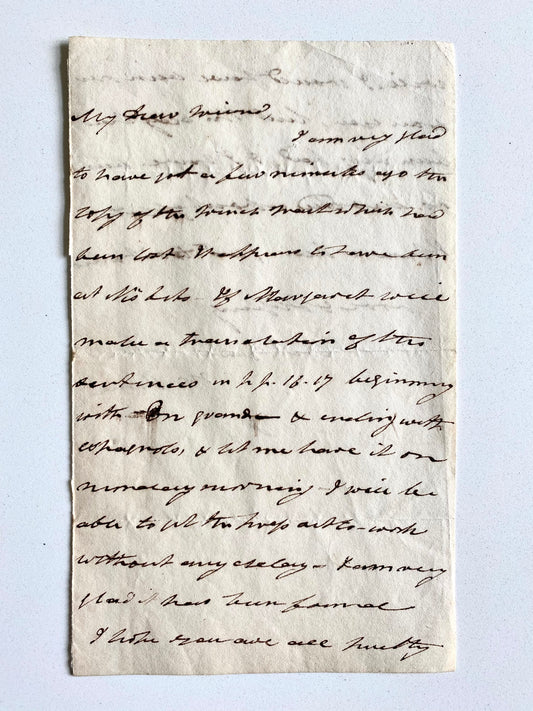 My Dear Friend
I am very glad
to have got a few minutes ago the
copy of the French Tract which had
been lost. It appears to have been
at If Margaret will
make a translation of the
sentences in p.p. 16-17 beginning
with On grande & ending with
Espagnols, & let me have it on
monday morning I will be
able to set the press at to-work
without any delay - I am very
glad it has been found
I hope you are all pretty